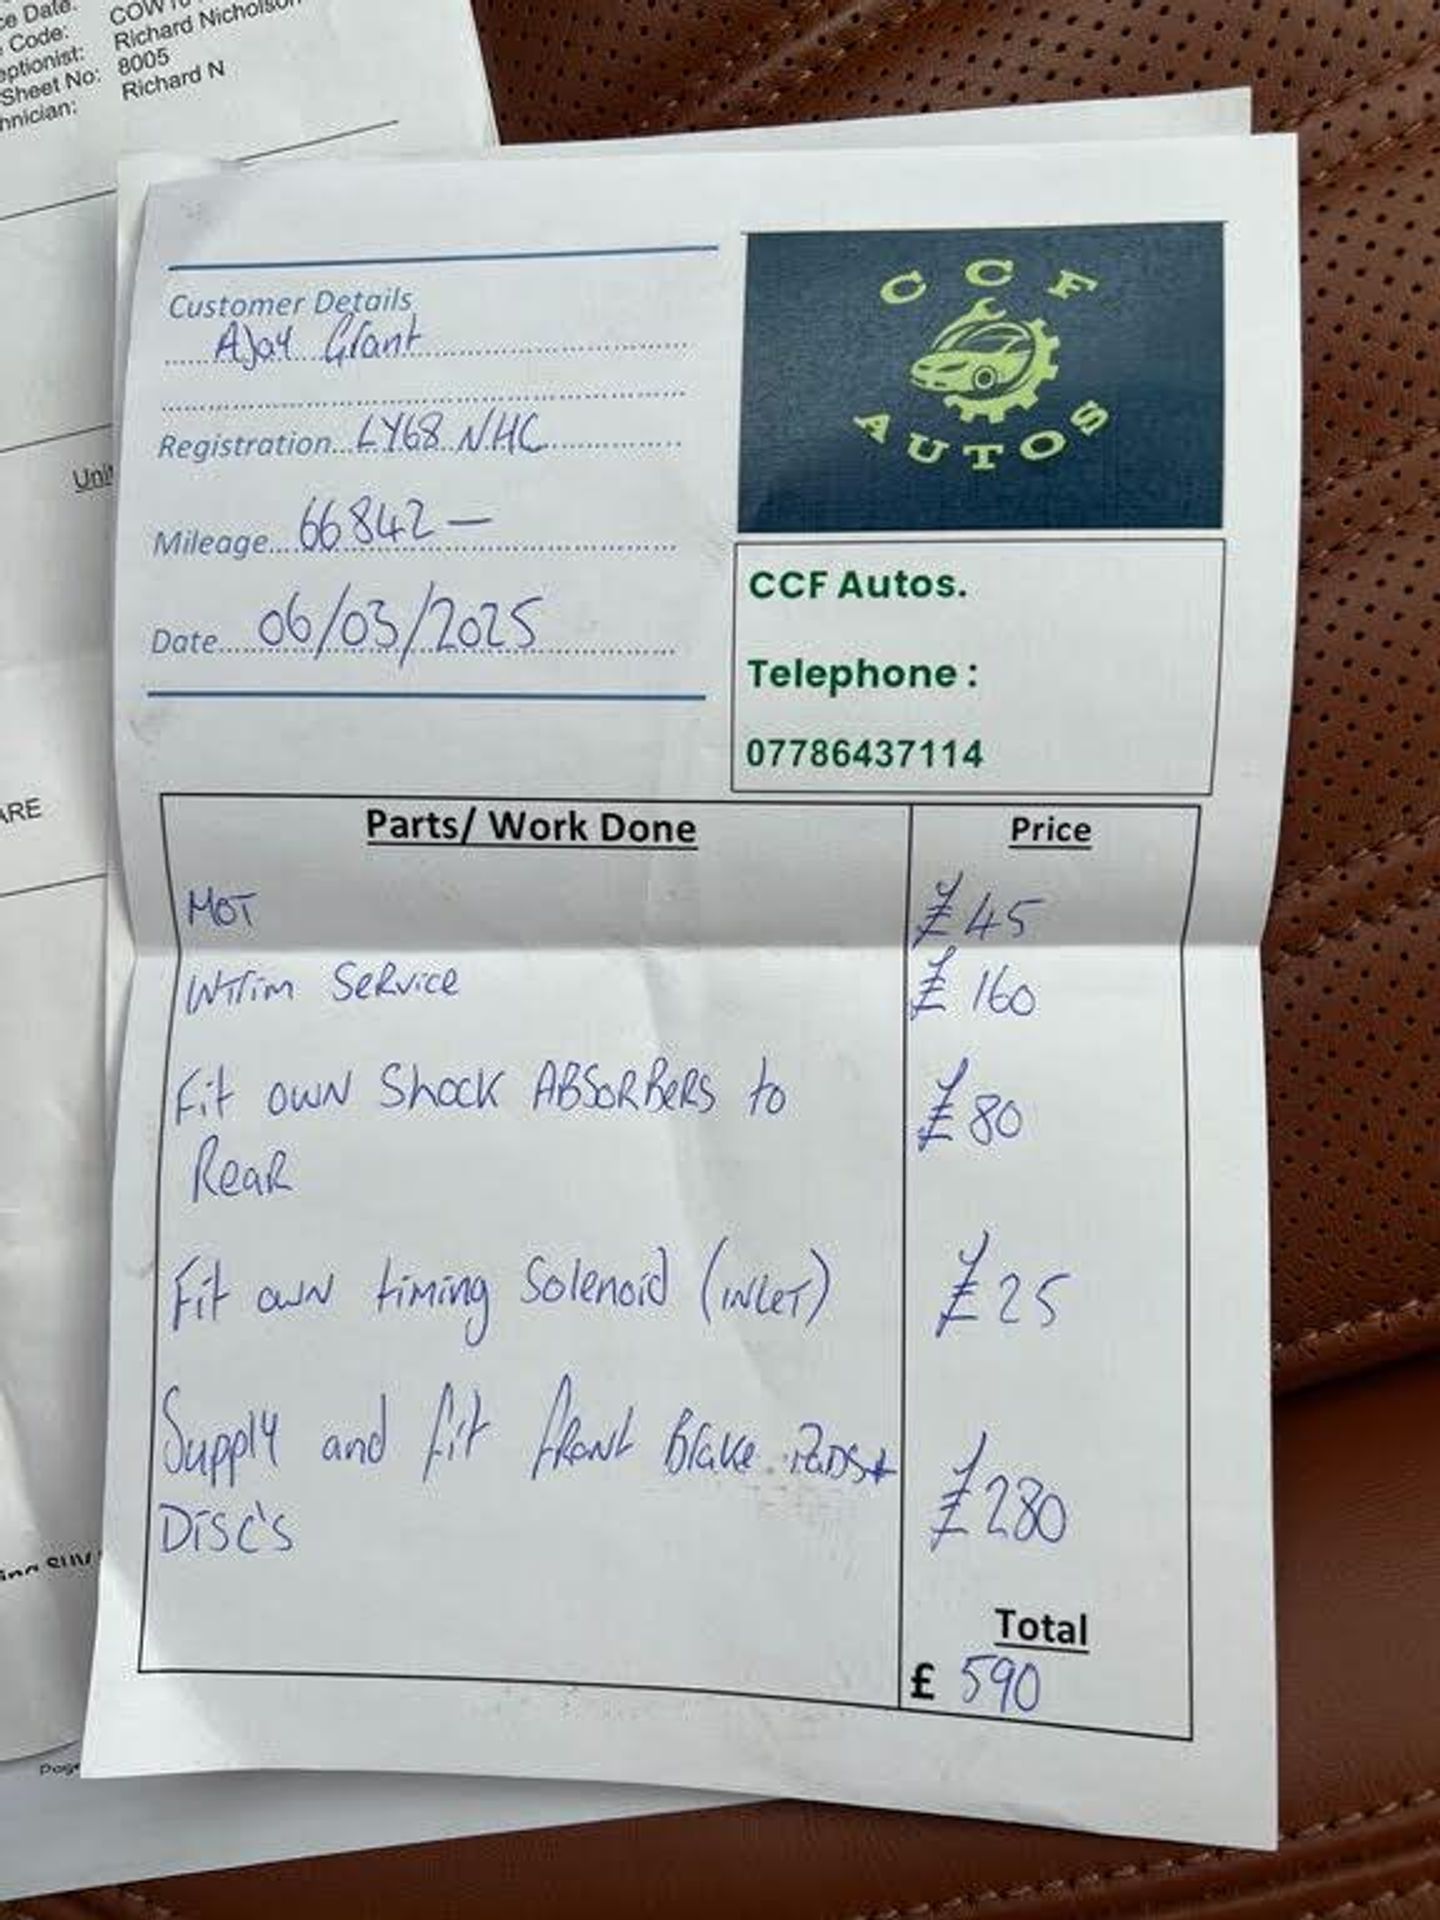 ce Date:
e Code:
Richard Nicholson
eptionist:
8005
Sheet No:
Richard N
hnician:
Unit
ARE
Page
Customer Details
AJay Grant
Registration LY68 NHC
Mileage 66842 —
Date 06/03/2025
CCF
AUTOS
CCF Autos.
Telephone :
07786437114
Parts/ Work Done Price
MOT £45
Service £160
Fit own Shock ABSORBERS to £80
Rear
Fit own timing Solenoid (INLET) £25
Supply and fit front Brake PaDs+ £280
Disc's
Total
£ 590